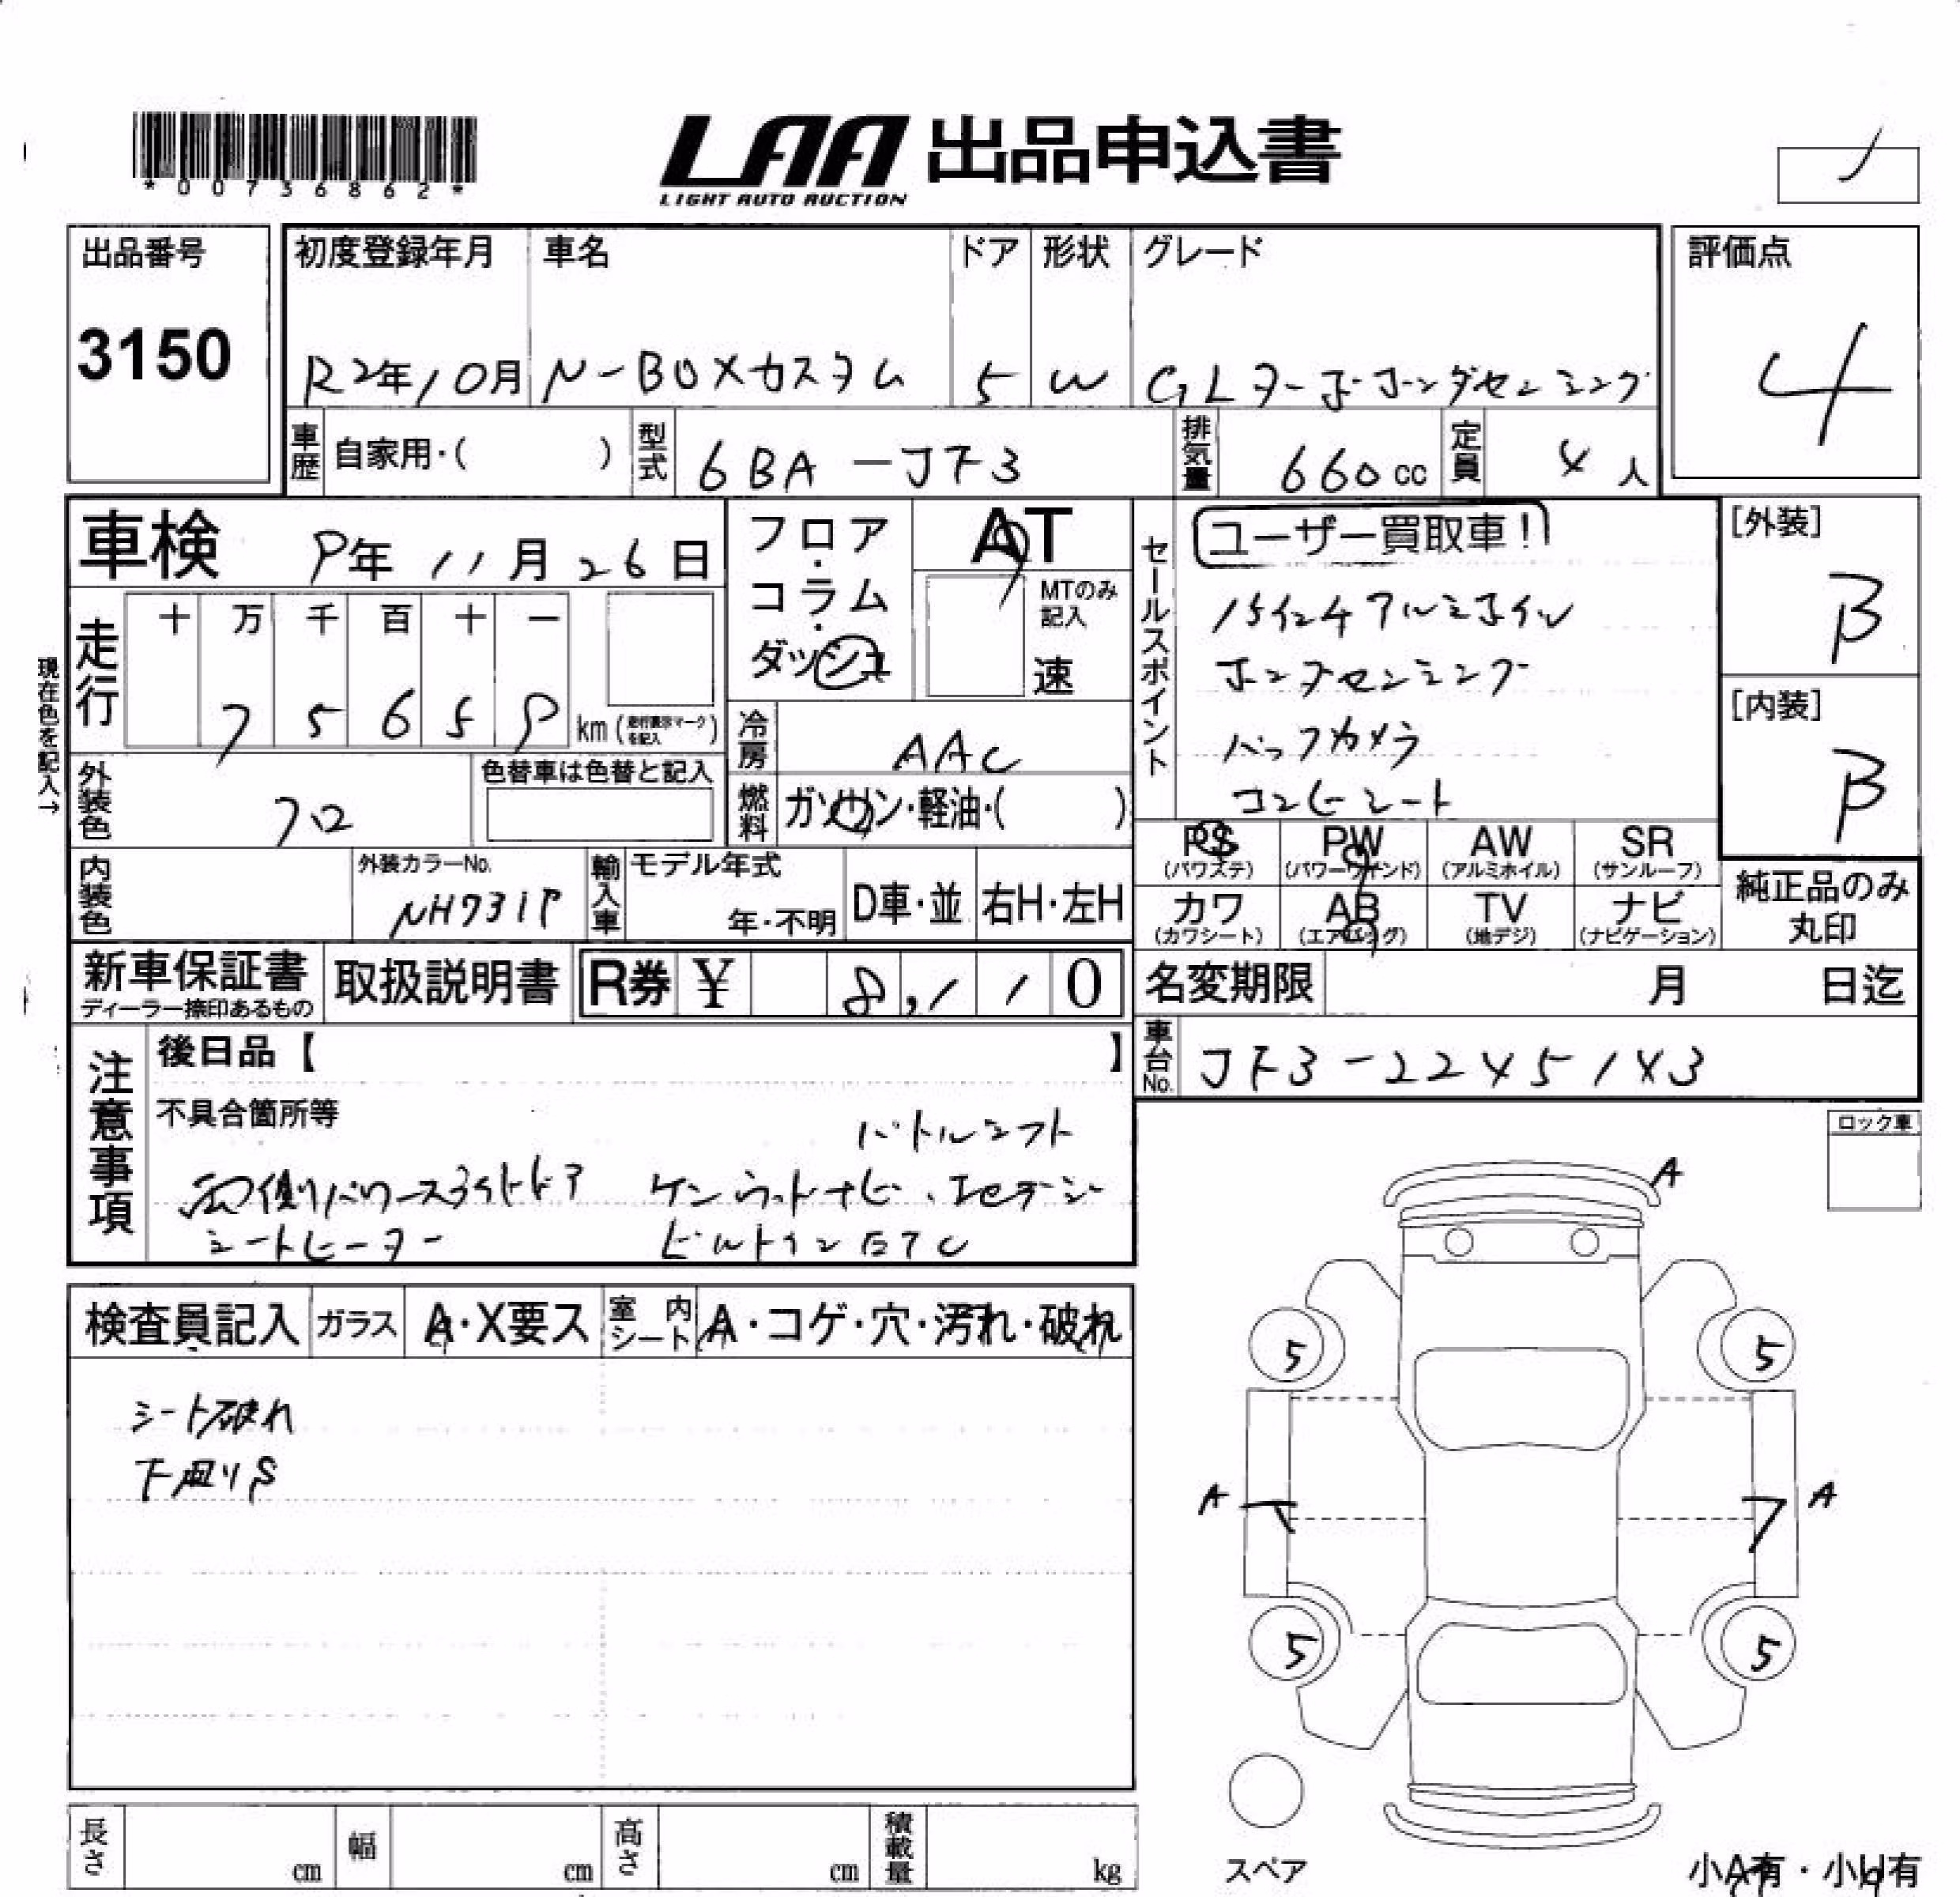 *00736862*
LAA 出品申込書
LIGHT AUTO AUCTION
出品番号
3150
初度登録年月
R2年10月
車名
N-BOXカスタム
ドア
5
形状
W
グレード
GLターボホンダセンシング
評価点
4
車歴
自家用・( )
型式
6BA-JF3
排気量
660cc
定員
4人
車検
9年11月26日
フロア・コラム・ダッシュ
AT
MTのみ記入
速
セールスポイント
ユーザー買取車!!
15インチアルミホイル
ホンダセンシング
バックカメラ
コンビシート
[外装]
B
[内装]
B
現在色を記入→
走行
十 万 千 百 十 一
7 5 6 5 9
km(走行表示マークを記入)
冷房
AAC
燃料
ガソリン・軽油・( )
外装色
クロ
色替車は色替と記入
PS
(パワステ)
PW
(パワーウインド)
AW
(アルミホイル)
SR
(サンルーフ)
カワ
(カワシート)
AB
(エアバッグ)
TV
(地デジ)
ナビ
(ナビゲーション)
純正品のみ
丸印
内装色
外装カラーNo.
NH731P
輸入車
モデル年式
年・不明
D車・並
右H・左H
新車保証書
ディーラー捺印あるもの
取扱説明書
R券 ¥ 8,110
名変期限
月 日迄
車台No.
JF3-2245143
注意事項
後日品【 】
不具合箇所等
パドルシフト
両側パワースライドドア ケンウッドナビ、フルセグ
シートヒーター ビルトインETC
ロック車
検査員記入
ガラス
A・X要ス
室内シート
A・コゲ・穴・汚れ・破れ
シート破れ
下回りS
A
5 5
A A
5 5
長さ cm
幅 cm
高さ cm
積載量 kg
スペア
小A有・小U有